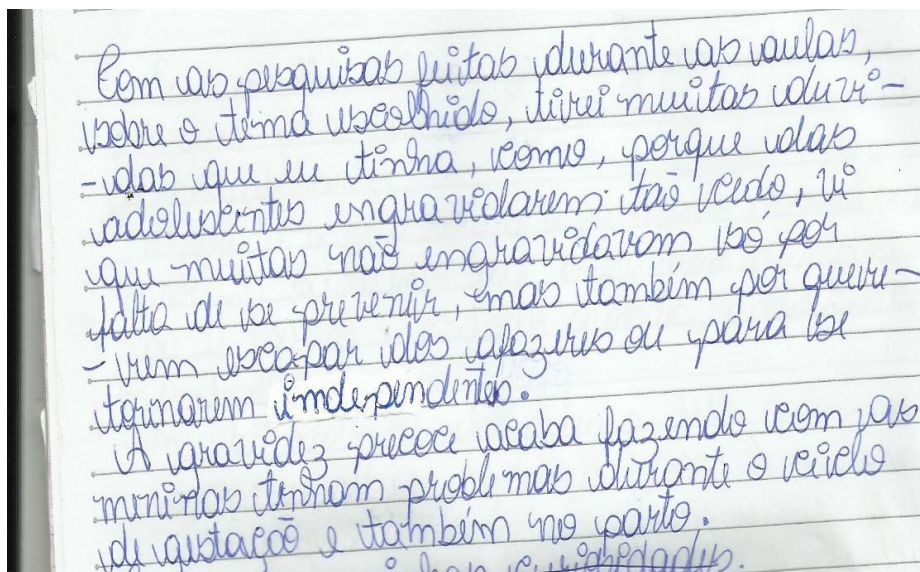 Com as pesquisas feitas durante as aulas,
sobre o tema escolhido, tirei muitas duvi-
-das que eu tinha, como, porque das
adolescentes engravidarem tão cedo, vi
que muitas não engravidavam só por
falta de se prevenir, mas também por quere-
-rem escapar dos afazeres ou para se
tornarem independentes.
A gravidez precoce acaba fazendo com as
meninas tenham problemas durante o ciclo
de gestação e também no parto.
curiosidades.